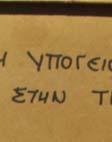 Η ΥΠΟΓΕΙΟ
ΣΤΗΝ Τ